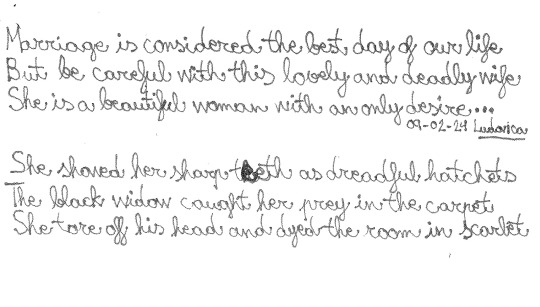 Marriage is considered the best day of our life
But be careful with this lovely and deadly wife
She is a beautiful woman with an only desire...
09-02-21 Ludovica
She showed her sharp teeth as dreadful hatchets
The black widow caught her prey in the carpet
She tore off his head and dyed the room in scarlet